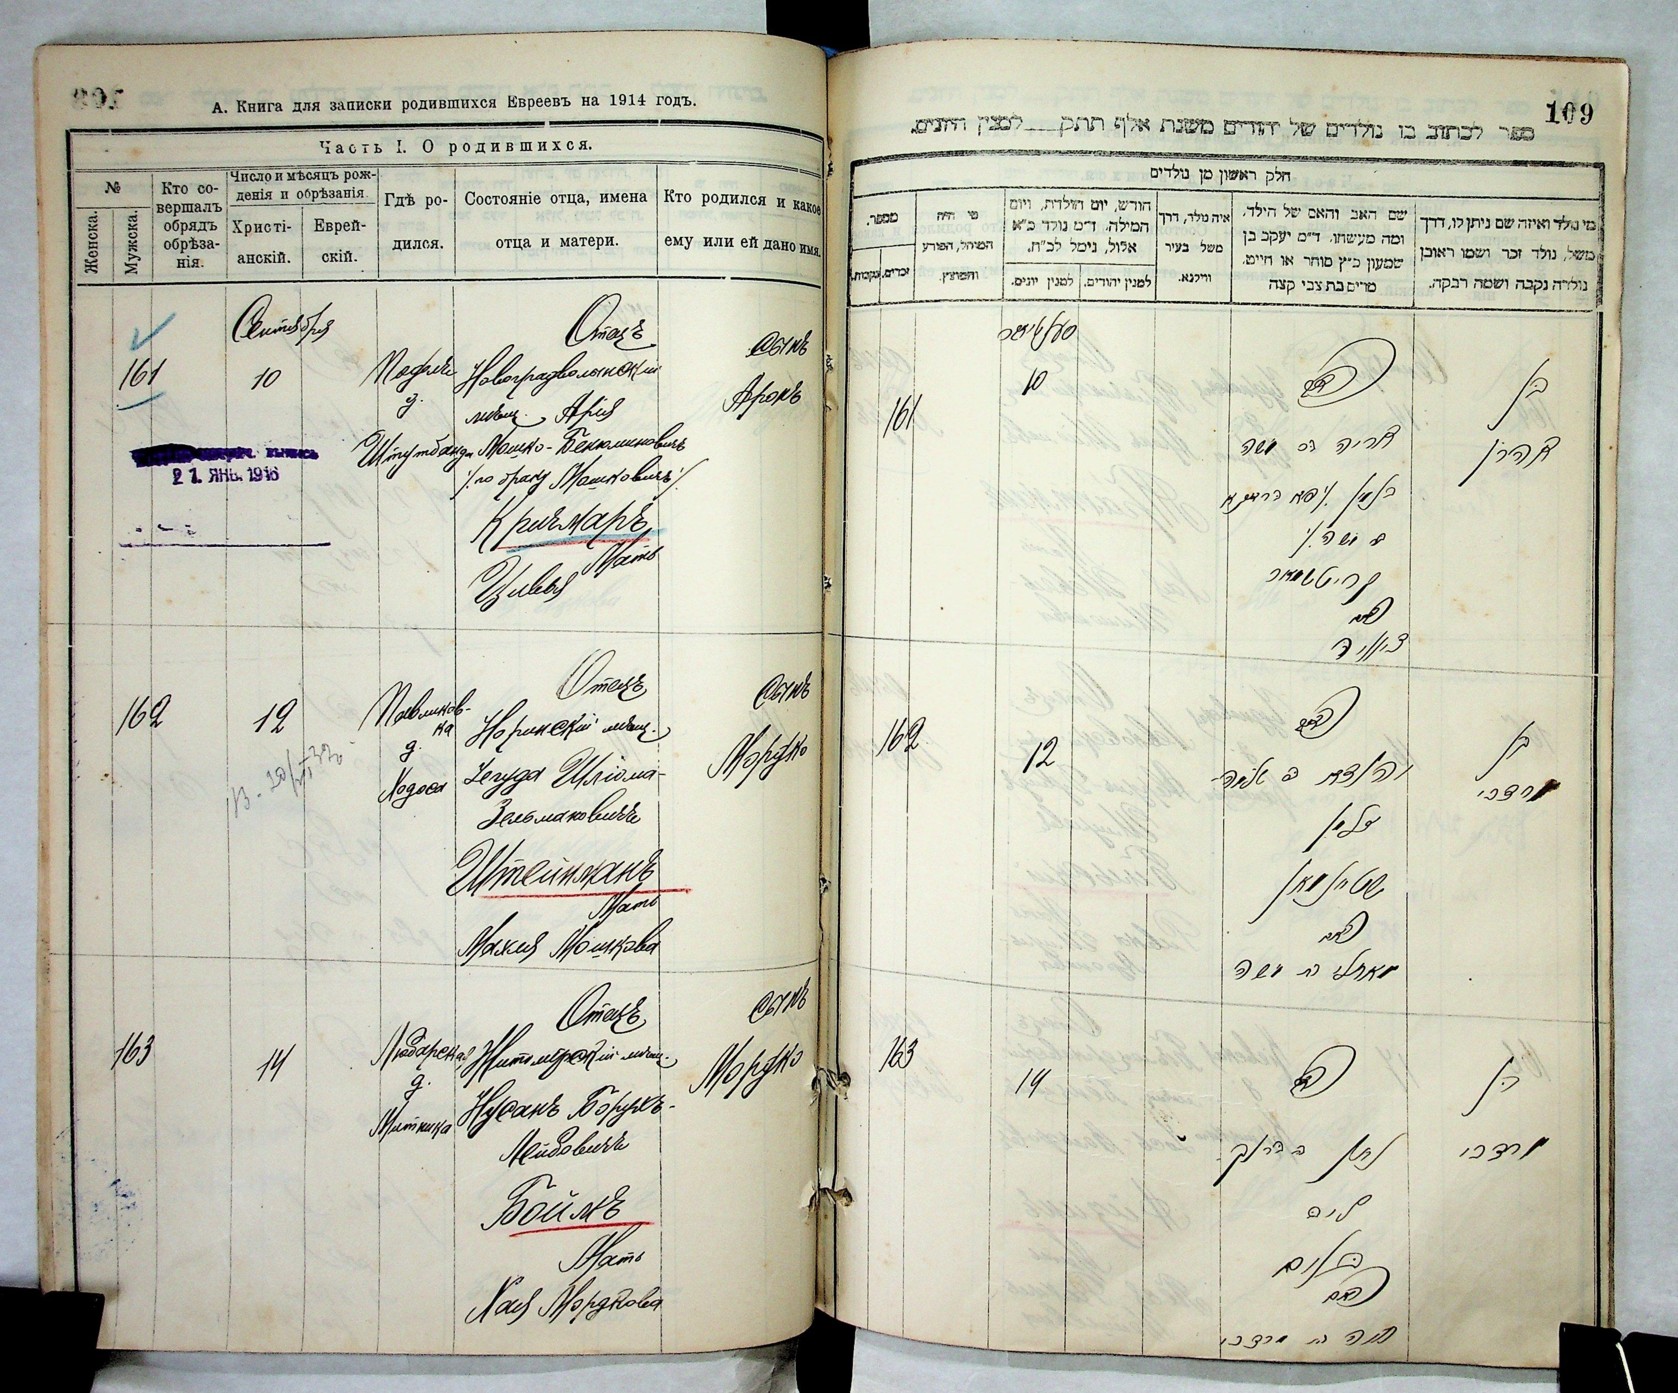 А. Книга для записки родившихся Евреевъ на 1914 годъ.
Часть I. О родившихся.
№
Женска.
Мужска.
Кто со-
вершалъ
обрядъ
обрѣза-
нія.
Число и мѣсяцъ рож-
денія и обрѣзанія.
Христі-
анскій.
Еврей-
скій.
Гдѣ ро-
дился.
Состояніе отца, имена
отца и матери.
Кто родился и какое
ему или ей дано имя.
Сентября
161
10
д.
Отецъ
Новоградволынскій
мѣщ. Арія
Мошко-Беньюминовичъ
/по браку Мошковичъ/
Кричмаръ
Мать
Цивья
Сынъ
Аронъ
21. ЯНВ. 1916
162
12
Павликов-
ка
д.
Ходоса
Отецъ
Норинскій мѣщ.
Іегуда Шліома-
Зельмановичъ
Штейнманъ
Мать
Махля Мошкова
Сынъ
Мордко
163
14
Любарская
д.
Миткина
Отецъ
Житомірскій мѣщ.
Нусанъ Борухъ-
Лейбовичъ
Боймъ
Мать
Хая Мордкова
Сынъ
Мордко
109
ספר לכתוב בו נולדים של יהודים משנת אלף תתק___למנין היונים.
חלק ראשון מן נולדים
מספר.
זכרים.
נקבות.
מי היה
המוהל, הפורע
והמוצץ.
חודש, יום הולדת, ויום
המילה. ד״מ נולד כ״א
אלול, נימל לכ״ח.
למנין יונים.
למנין יהודים.
איה נולד, דרך
משל בעיר
ווילנא.
שם האב והאם של הילד,
ומה מעשהו. ד״מ יעקב בן
שמעון כ״ץ סוחר או חייט,
מרים בת צבי קצב
מי נולד ואיזה שם ניתן לו, דרך
משל, נולד זכר ושמו ראובן
נולדה נקבה ושמה רבקה.
סעלטיאבר
161
10
אריה בן משה
קריטשמאר
צוויה
בן
אהרן
162
12
זלמן
שטיינמאן
מאחלי בת משה
בן
מרדכי
163
14
נתן ברוך
ליב
בוים
חיה בת מרדכי
בן
מרדכי